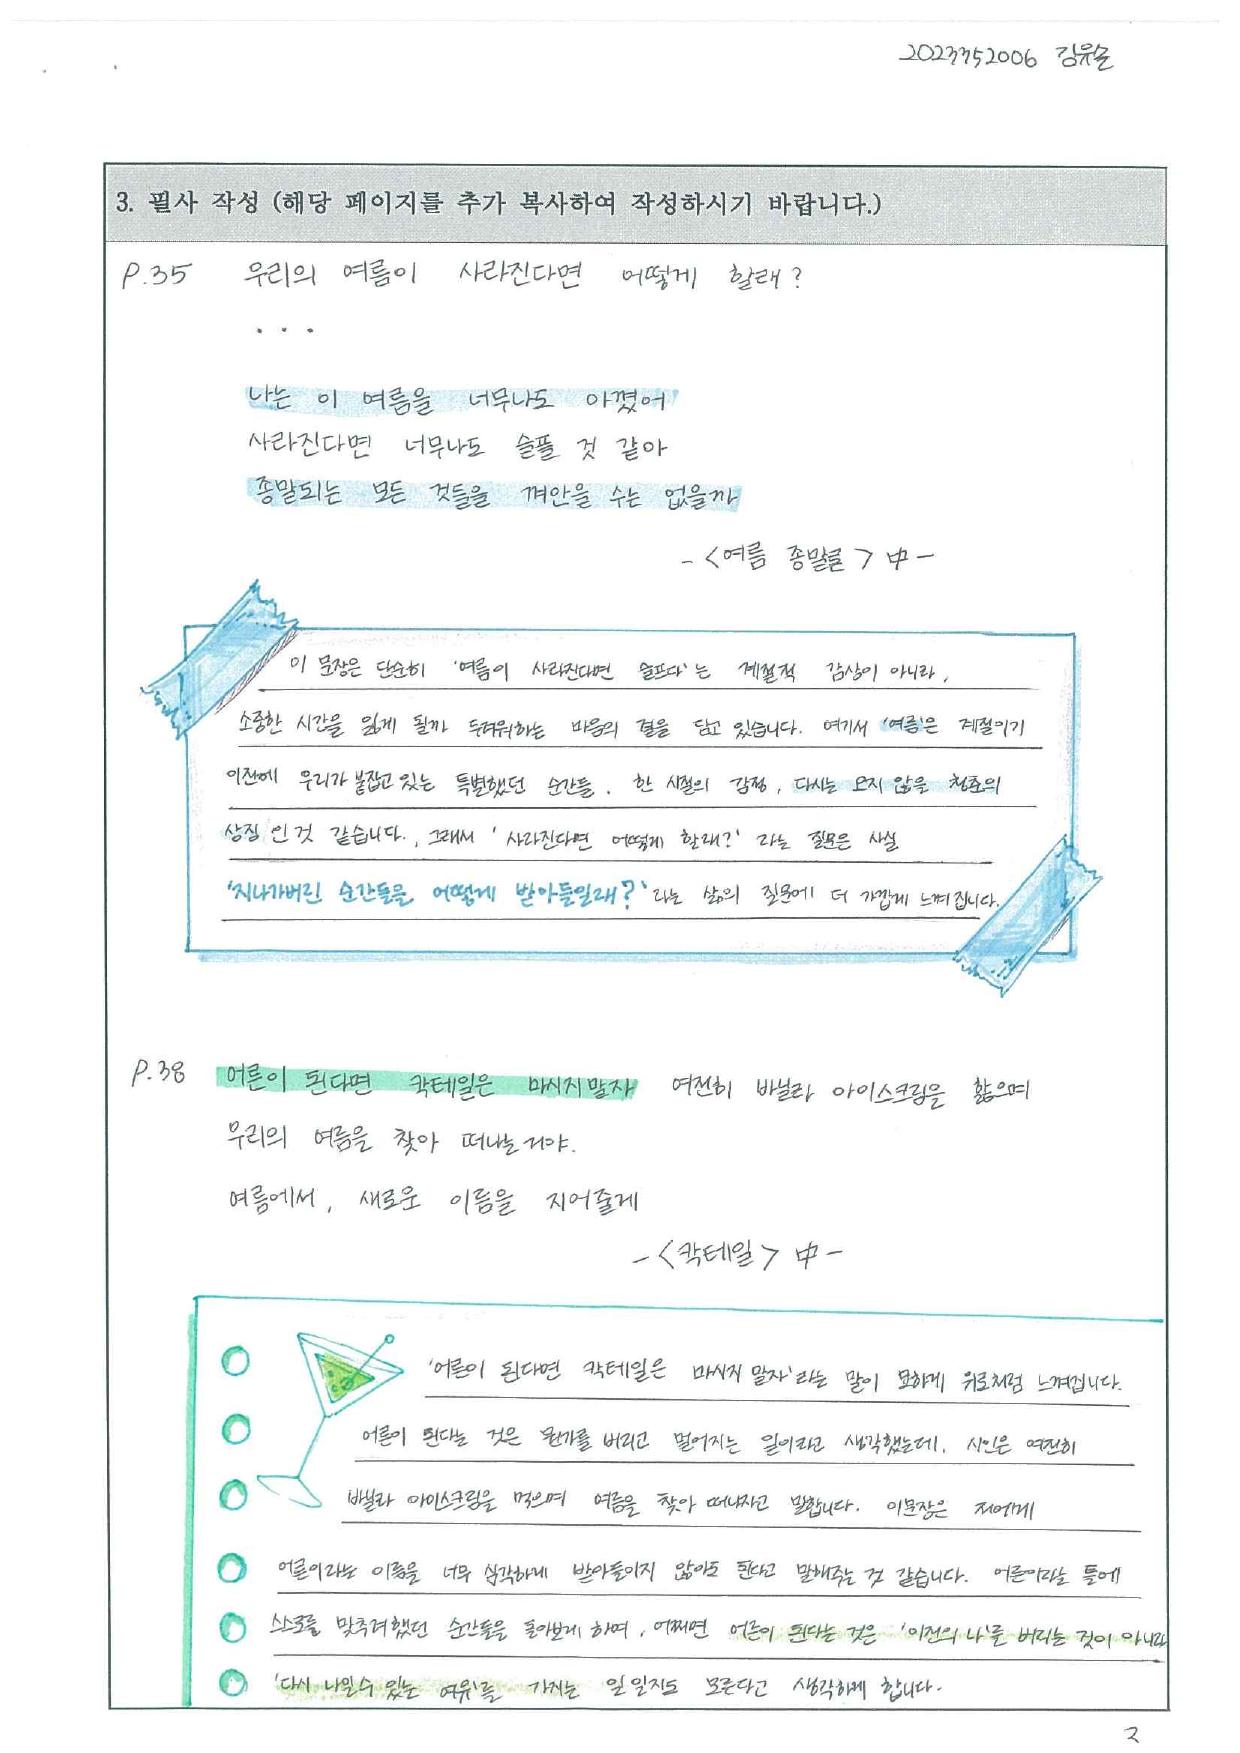 2023352006 김유은
3. 필사 작성 (해당 페이지를 추가 복사하여 작성하시기 바랍니다.)
P.35 우리의 여름이 사라진다면 어떻게 할래?
...
나는 이 여름을 너무나도 아꼈어
사라진다면 너무나도 슬플 것 같아
종말되는 모든 것들을 껴안을 수는 없을까
-<여름 종말론> 中-
이 문장은 단순히 '여름이 사라진다면 슬프다'는 계절적 감상이 아니라,
소중한 시간을 잃게 될까 두려워하는 마음의 결을 담고 있습니다. 여기서 '여름'은 계절이기
이전에 우리가 붙잡고 있는 특별했던 순간들, 한 시절의 감정, 다시는 오지 않을 청춘의
상징 인 것 같습니다., 그래서 '사라진다면 어떻게 할래?' 라는 질문은 사실
'지나가버린 순간들을 어떻게 받아들일래?'라는 삶의 질문에 더 가깝게 느껴집니다.
P.38 어른이 된다면 칵테일은 마시지말자 여전히 바닐라 아이스크림을 핥으며
우리의 여름을 찾아 떠나는거야.
여름에서, 새로운 이름을 지어줄게
-<칵테일> 中-
'어른이 된다면 칵테일은 마시지 말자'라는 말이 묘하게 위로처럼 느껴집니다.
어른이 된다는 것은 뭔가를 버리고 멀어지는 일이라고 생각했는데, 시인은 여전히
바닐라 아이스크림을 먹으며 여름을 찾아 떠나자고 말합니다. 이문장은 저에게
어른이라는 이름을 너무 심각하게 받아들이지 않아도 된다고 말해주는 것 같습니다. 어른이라는 틀에
스스로를 맞추려했던 순간들을 돌아보게 하며, 어쩌면 어른이 된다는 것은 '이전의 나'를 버리는 것이 아니라
'다시 나일수 있는 여유'를 가지는 일 일지도 모른다고 생각하게 합니다.
2